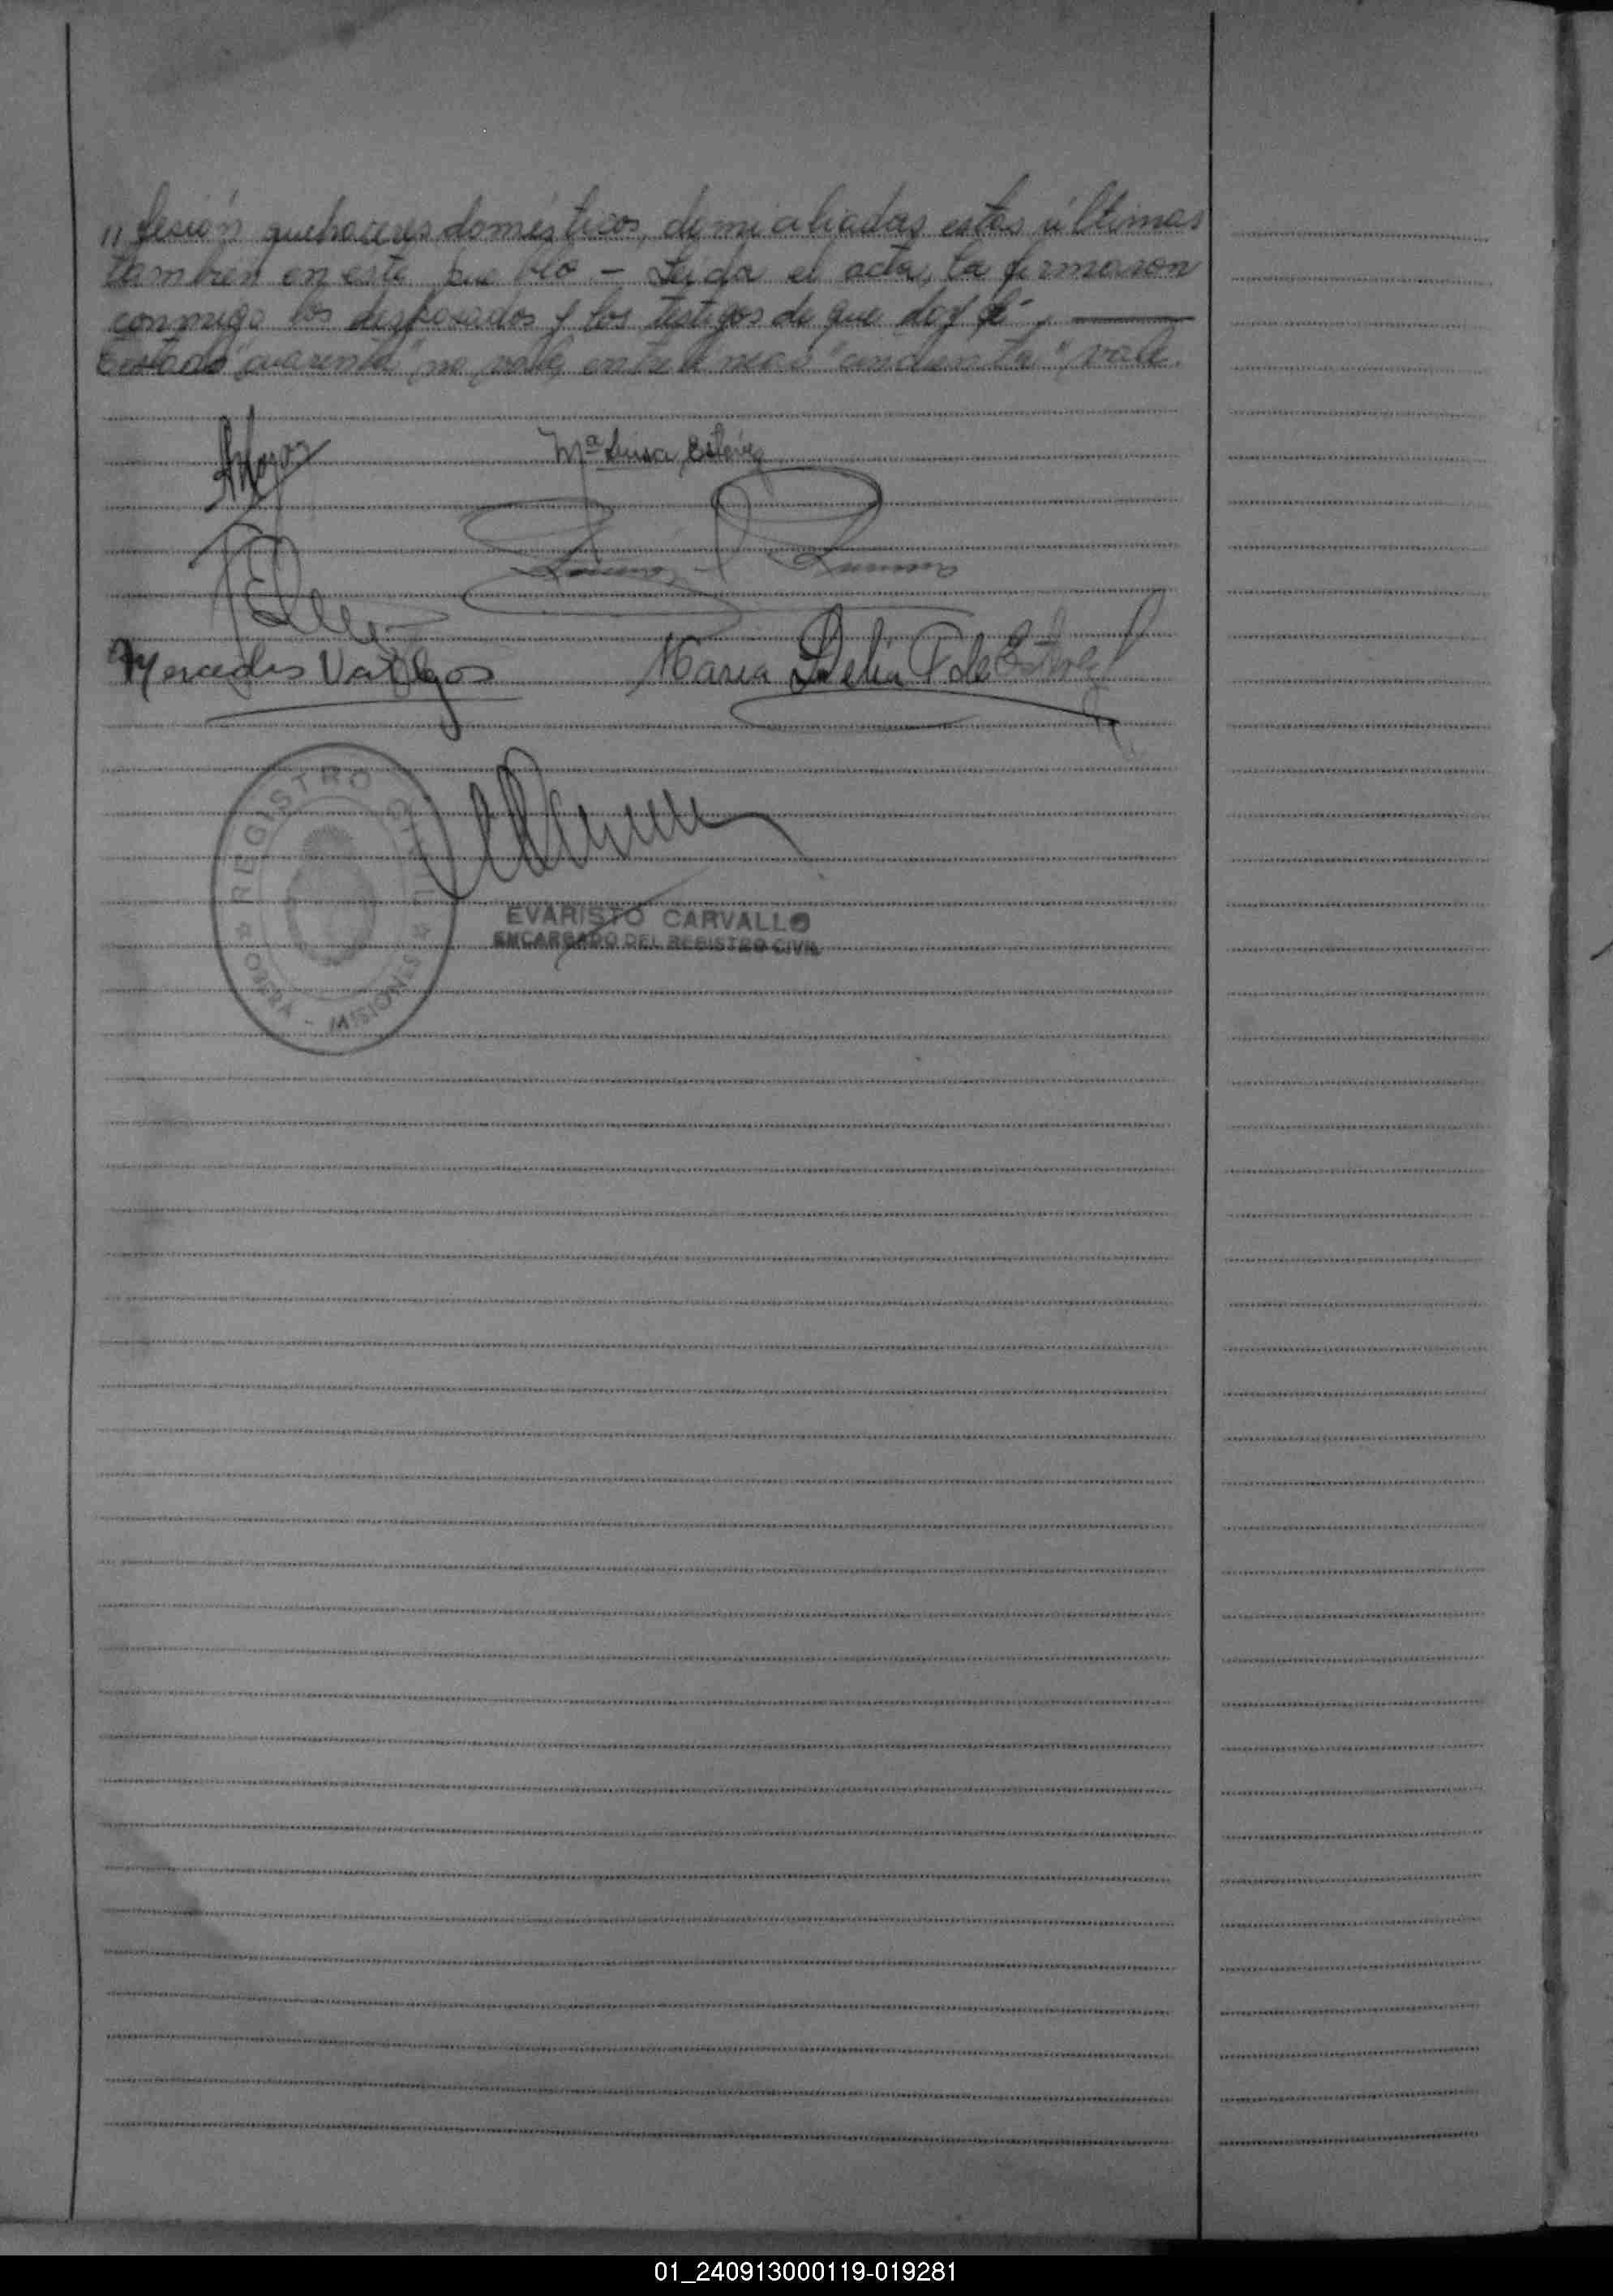 "fesión quehaceres domésticos, domiciliadas estas últimas
también en este pueblo - Leída el acta, la firmaron
conmigo los desposados y los testigos de que doy fé.
Testado "cuarenta" no vale, entre lineas "cincuenta" vale.
Mª Luisa Estévez
Mercedes Vallejos
Maria Delia F de Estevez
REGISTRO CIVIL
OBERA - MISIONES
EVARISTO CARVALLO
ENCARGADO DEL REGISTRO CIVIL
01_240913000119-019281